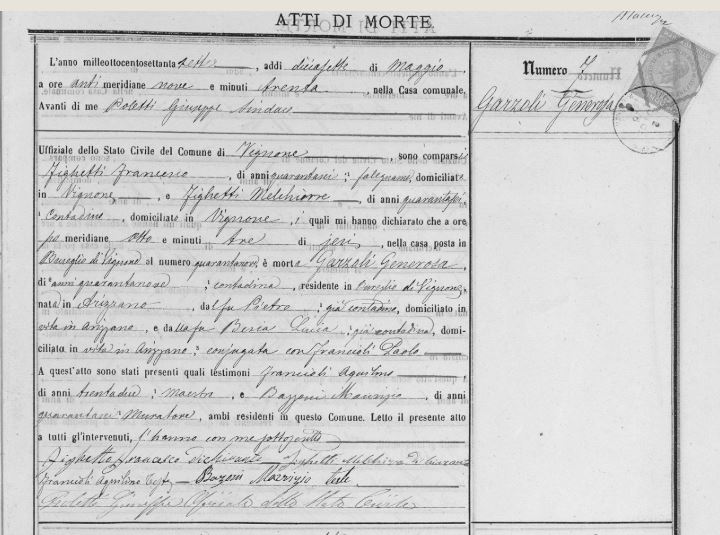 ATTI DI MORTE.
Numero 7
Garzoli Generosa
L'anno milleottocentosettanta sette, addi diciasette di Maggio,
a ore anti meridiane nove e minuti trenta, nella Casa comunale.
Avanti di me Poletti Giuseppe Sindaco
Uffiziale dello Stato Civile del Comune di Vignone, sono comparsi
Zighetti Francesco, di anni quarantasei, falegname, domiciliato
in Vignone, e Zighetti Melchiorre, di anni
contadino, domiciliato in Vignone, i quali mi hanno dichiarato che a ore
po meridiane otto e minuti tre di jeri, nella casa posta in
Bureglio di Vignone al numero quarantanove, è morta Garzoli Generosa,
di anni quarantanove, contadina, residente in Bureglio di Vignone,
nata in Arizzano, dal fu Pietro, già contadino, domiciliato in
vita in Arizzano, e dalla fu Lucia, già contadina, domi-
ciliato in vita in Arizzano, conjugata con Francioli Paolo
A quest'atto sono stati presenti quali testimoni Francioli Aquilino,
di anni trentadue, maestro, e Bazzoni Maurizio, di anni
quarantasei Muratore, ambi residenti in questo Comune. Letto il presente atto
a tutti gl'intervenuti, l'hanno con me sottoscritto
Zighetti Francesco Dichiarante Zighetti
Francioli Aquilino Test. Bazoni Maorizio Teste
Poletti Giuseppe Ufficiale dello Stato Civile